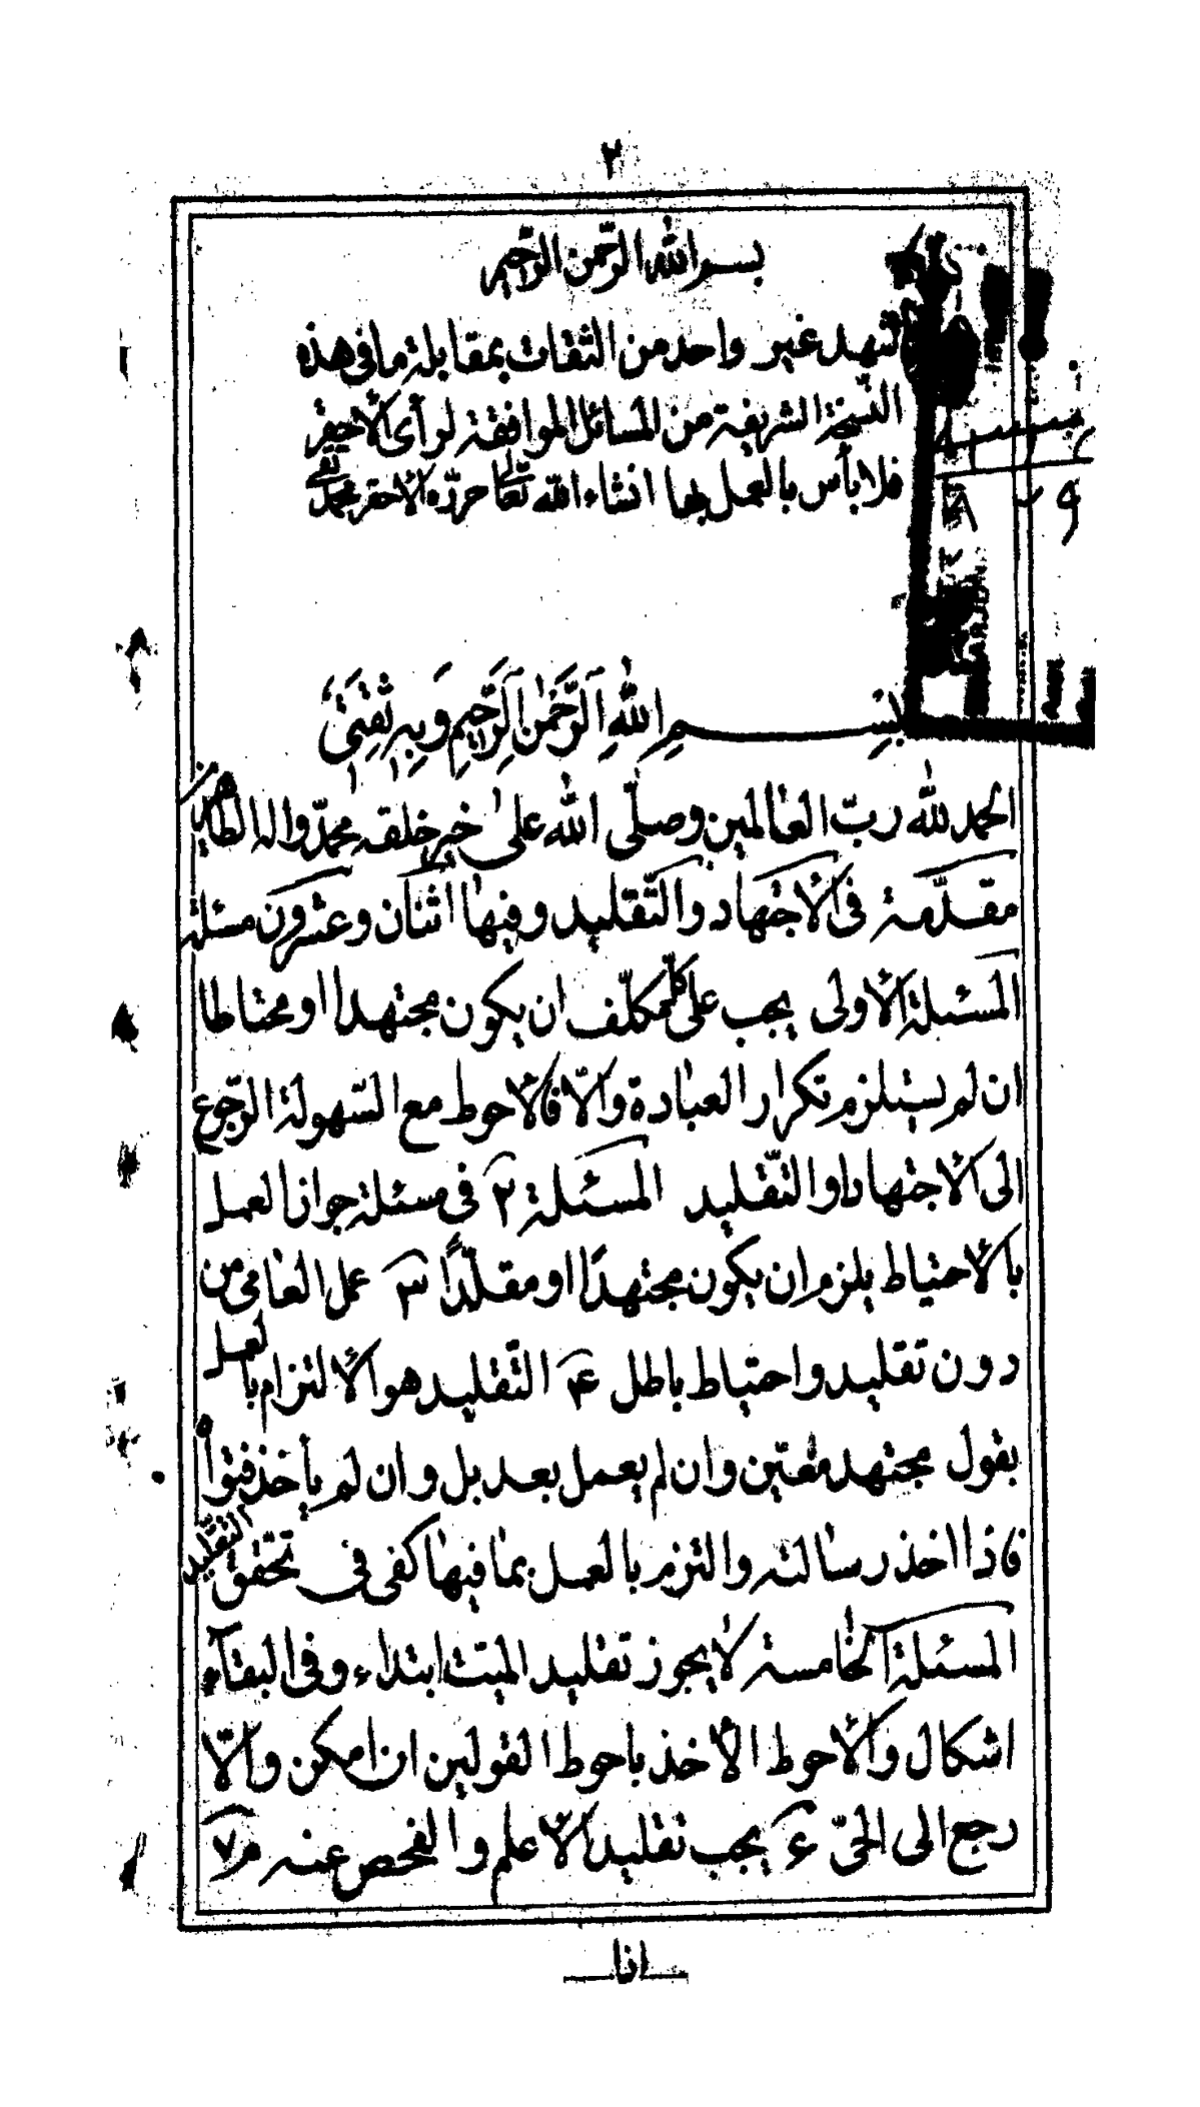 ٢
بسم الله الرحمن الرحيم
شهد غير واحد من الثقات بمقابلة ما فى هذه
النسخة الشريفة من المسائل الموافقة لرأى الأحقر
فلا بأس بالعمل بها انشاء الله تعالى حرّره الأحقر محمد تقى
بِسْمِ اللهِ الرَّحْمٰنِ الرَّحِيمِ وَبِهِ ثِقَتِى
الحمد لله ربّ العالمين وصلّى الله على خير خلقه محمّد واله الطاهرين
مقدّمة فى الأجتهاد والتّقليد وفيها اثنان وعشرون مسئلة
المسئلة الأولى يجب على كلّ مكلّف ان يكون مجتهدا او محتاطا
ان لم يستلزم تكرار العبادة والّا فالأحوط مع السّهولة الرّجوع
الى الأجتهاد او التّقليد المسئلة ٢ فى مسئلة جواز العمل
بالأحتياط يلزم ان يكون مجتهدًا او مقلّدًا ٣ عمل العامى من
دون تقليد واحتياط باطل ۴ التّقليد هو الألتزام بالعمل
بقول مجتهد معيّن وان لم يعمل بعد بل وان لم يأخذ فتواه
فاذا اخذ رسالته والتزم بالعمل بما فيها كفى فى تحقق التقليد
المسئلة الخامسة لا يجوز تقليد الميّت ابتداء وفى البقآء
اشكال والأحوط الأخذ باحوط القولين ان امكن والّا
رجع الى الحىّ ۶ يجب تقليد الأعلم والفحص عنه م ٧
اذا